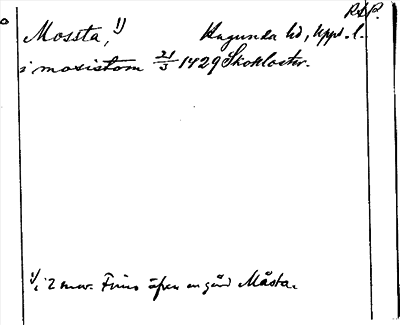 R.A.P.
Mossta, 1) Hagunda hd, Upps. l.
i moxistom 21/3 1429 Skokloster.
1) i 2 mur. Finns äfven en gård Måsta.